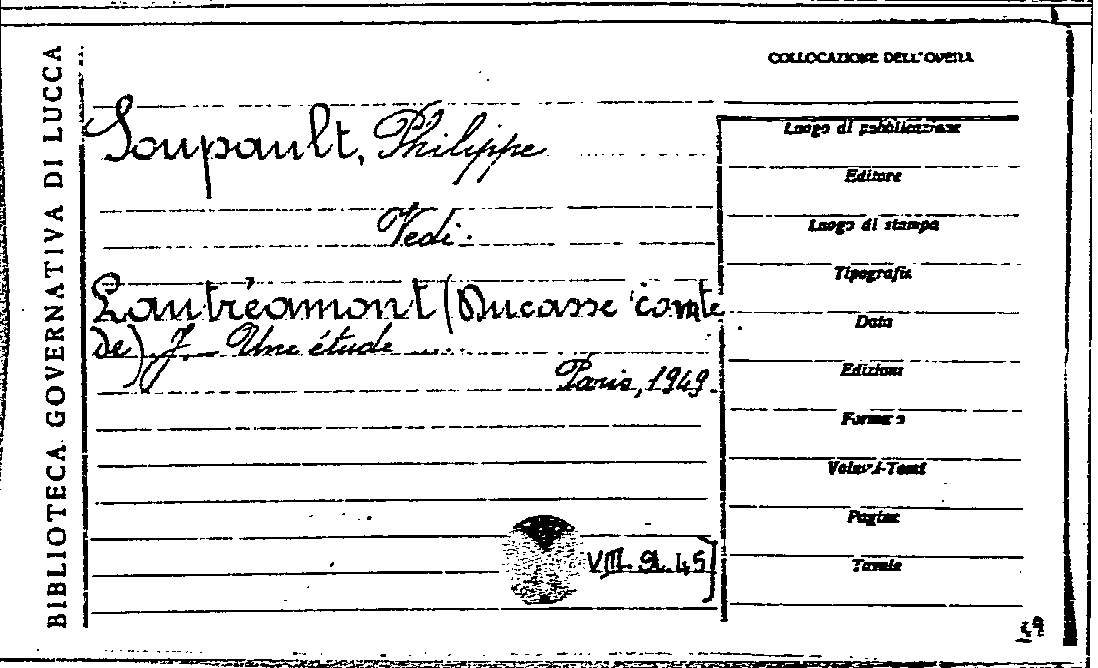 BIBLIOTECA GOVERNATIVA DI LUCCA
COLLOCAZIONE DELL'OPERA
Soupault, Philippe
Vedi:
Lautréamont (Ducasse comte
de) J. Une étude ....
Paris, 1949.
Luogo di pubblicazione
Editore
Luogo di stampa
Tipografia
Data
Edizioni
Formato
Volumi-Tomi
Pagine
Tavole